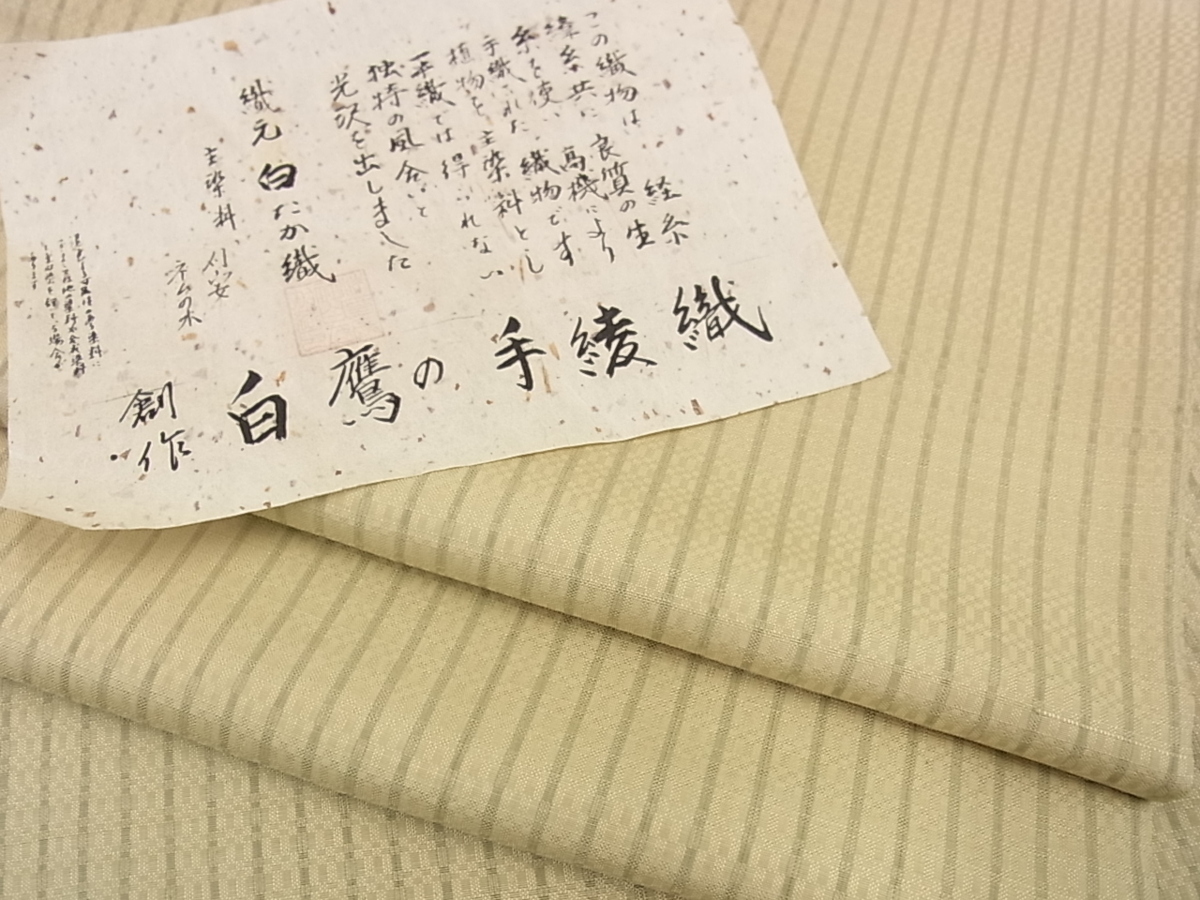 創作
白鷹の手綾織
この織物は経糸
緯糸共に良質の生
糸を使い高機により
手織された織物です
植物を主染料とし
平織では得られない
独特の風合と
光沢を出しました
織元 白たか織
主染料
ネムの木